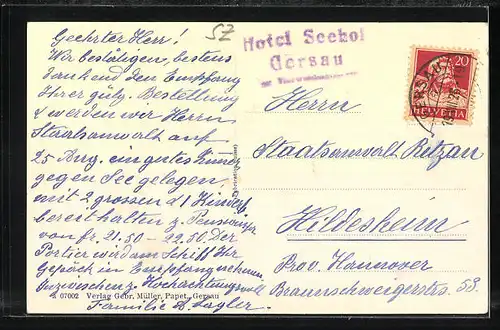 Geehrter Herr!
Wir bestätigen, bestens
dankend den Empfang
Ihrer gütg. Bestellung
& werden wir Herrn
Staatsanwalt auf
25 Aug. ein gutes Zimmer
gegen See gelegen,
mit 2 grossen & 1 Kinderb.
bereithalten z. Pensionspr.
von fr. 21.50 - 22.50. Der
Portier wird am Schiff Ihr
Gepäck in Empfang nehmen
Inzwischen Hochachtungsvoll
Familie
A 07002 Verlag Gebr. Müller, Papet., Gersau
SZ
Hotel Seehof
Gersau
20
HELVETIA
GERSAU
Herrn
Staatsanwalt Retzau
Hildesheim
Prov. Hannover
Braunschweigerstrs. 53.